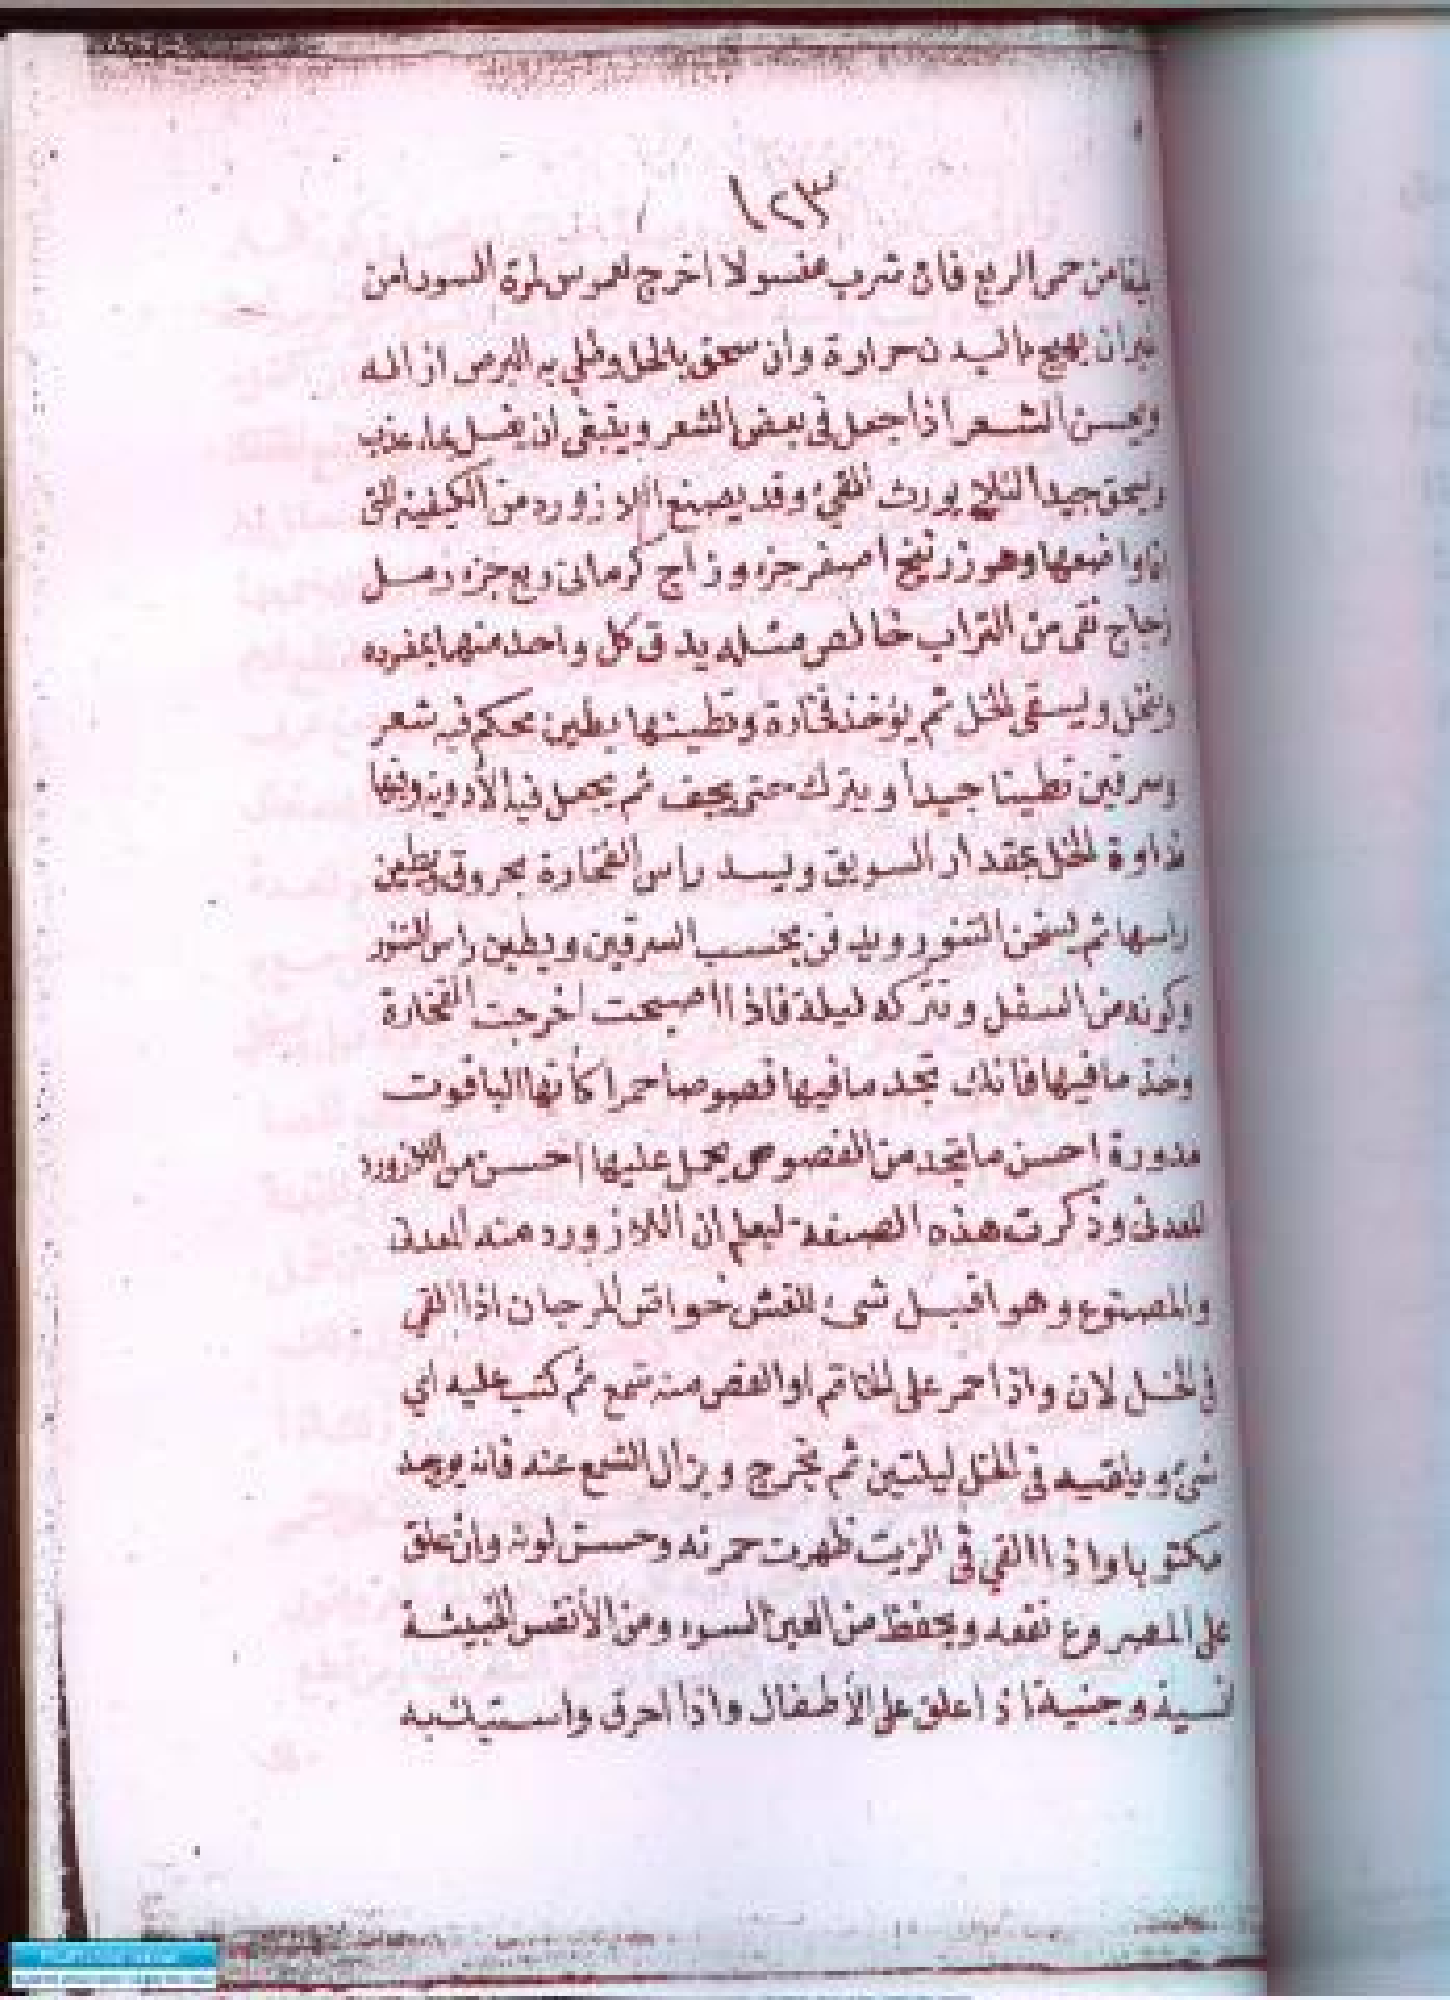 ١٢٣
من حمى الربع فان شرب مغسولا اخرج المرة السودا من
غيران يهيج بالبدن حرارة وان سحق بالخل وطلي به البرص ازاله
ويحسن الشعر اذا جعل فى بعض الشعر وينبغى ان يغسل بماء عذب
ويسحق جيدا لئلا يورث القيئ وقد يصنع اللازورد من الكيفية التى
انا واضعها وهو زرنيخ اصفر جزء وزاج كرمانى ربع جزء رمل
زجاج نقى من التراب خالص مثله يدق كل واحد منها بمفرده
وينخل ويسقى الخل ثم يؤخذ فخارة وتطينها بطين محكم فيه شعر
وسرقين تطينا جيدا ويترك حتى يجف ثم يجعل فيه الأدوية وفيها
نداوة الخل بمقدار السويق ويسد راس الفخارة بحروق ويطين
راسها ثم يسخن التنور ويدفن السرقين ويطين راس التنور
وكونه من السفل وتتركه ليلة فاذا اصبحت اخرجت الفخارة
وخذ ما فيها فانك تجد ما فيها فصوصا حمرا كأنها الياقوت
مدورة احسن ما تجد من الفصوص يحمل عليها احسن من اللازورد
المعدنى وذكرت هذه الصنعة ليعلم ان اللازورد منه المعدنى
والمصنوع وهو اقبل شىء للنقش خواص المرجان اذا القي
فى الخل لان واذا على الخاتم او الفص منه شمع ثم كتب عليه اي
شىء ويلقيه فى الخل ليلتين ثم تخرج ويزال الشمع عنه فانه يوجد
مكتوبا واذا القي فى الزيت ظهرت حمرته وحسن لونه وان علق
على المصروع نفعه ويحفظ من العين السوء ومن الأنفس الخبيثة
انسية وجنية اذا علق على الأطفال واذا احرق واستيك به